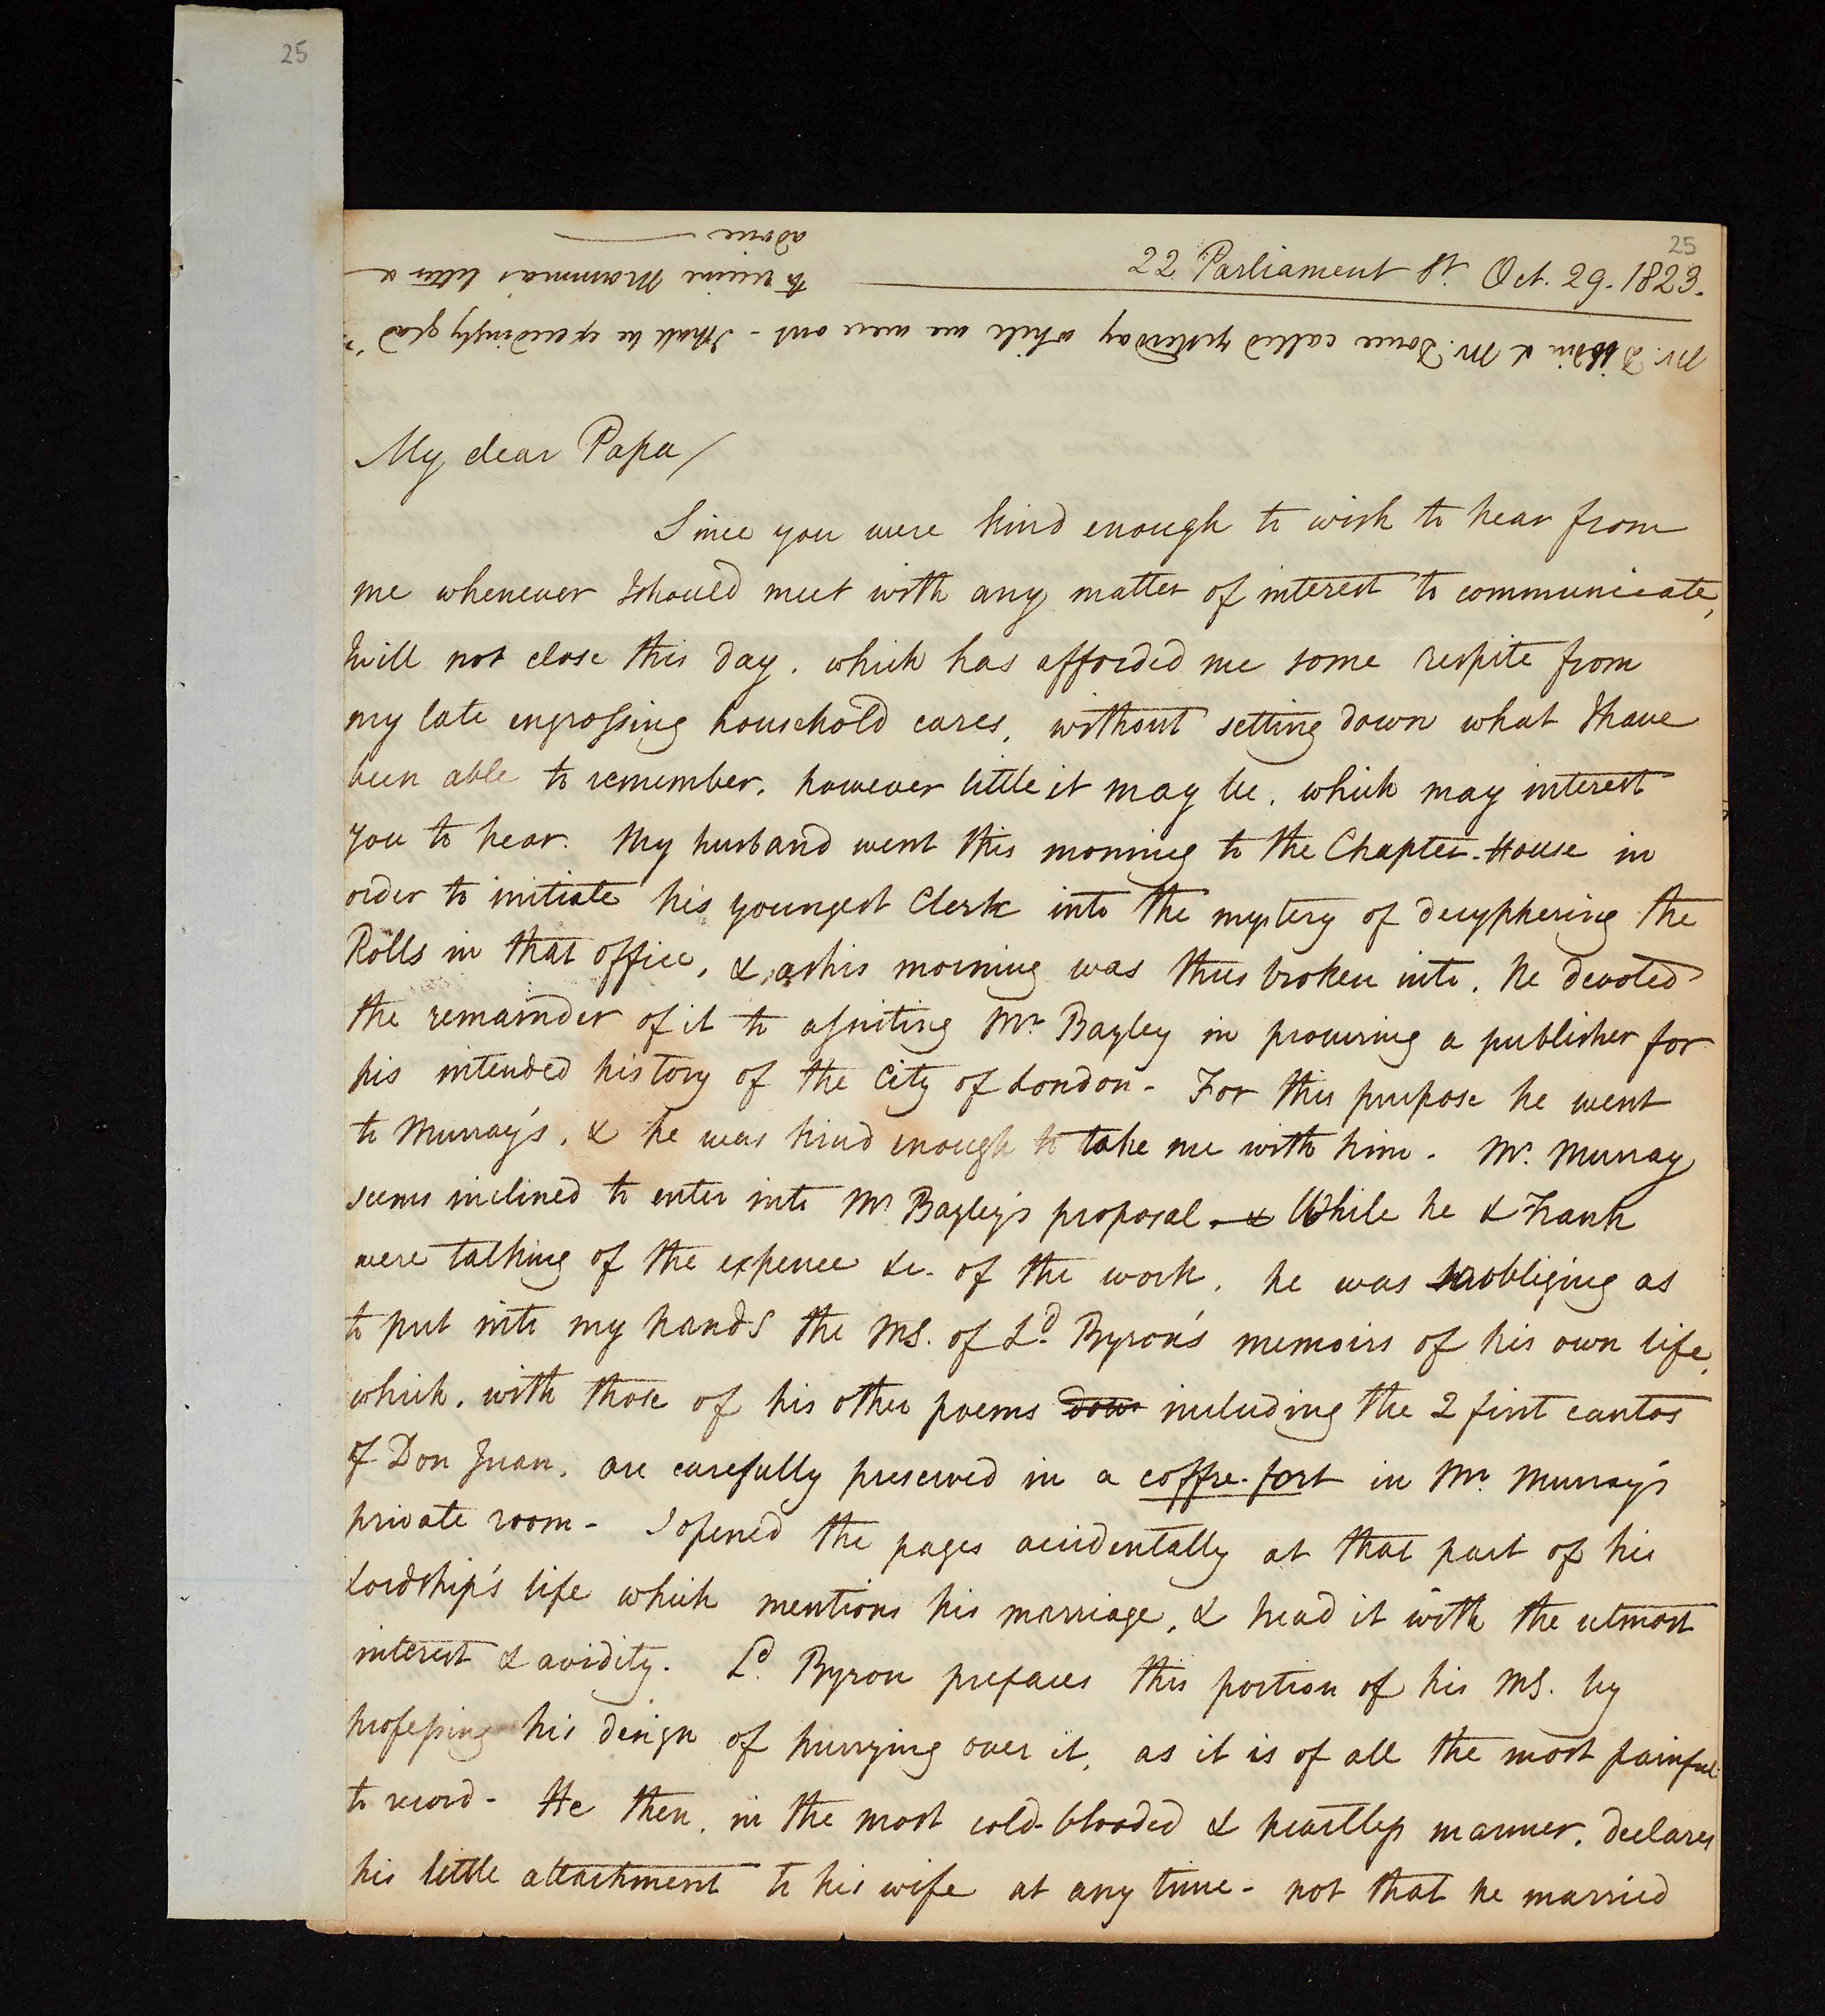 25
25
22 Parliament St. Oct. 29. 1823.
Mr. Dibdin & Mr. Douce called yesterday while we were out - I shall be exceedingly glad
to receive Mamma's letter &
advice
My dear Papa/
Since you were kind enough to wish to hear from
me whenever I should meet with any matter of interest to communicate,
I will not close this day, which has afforded me some respite from
my late engrossing household cares, without setting down what I have
been able to remember, however little it may be, which may interest
you to hear. My husband went this morning to the Chapter-House in
order to initiate his youngest Clerk into the mystery of decyphering the
Rolls in that office, & as his morning was thus broken into, he devoted
the remainder of it to assisting Mr. Bayley in procuring a publisher for
his intended history of the City of London - For this purpose he went
to Murray's, & he was kind enough to take me with him - Mr. Murray
seems inclined to enter into Mr. Bayley's proposal. & While he & Frank
were talking of the expence &c. of the work, he was so obliging as
to put into my hands the MS. of Ld. Byron's memoirs of his own life,
which, with those of his other poems including the 2 first cantos
of Don Juan, are carefully preserved in a coffre-fort in Mr. Murray's
private room - I opened the pages accidentally at that part of his
Lordship's life which mentions his marriage, & read it with the utmost
interest & avidity. Ld. Byron prefaces this portion of his MS. by
professing his design of hurrying over it, as it is of all the most painful
to record - He then, in the most cold-blooded & heartless manner, declares
his little attachment to his wife at any time - not that he married